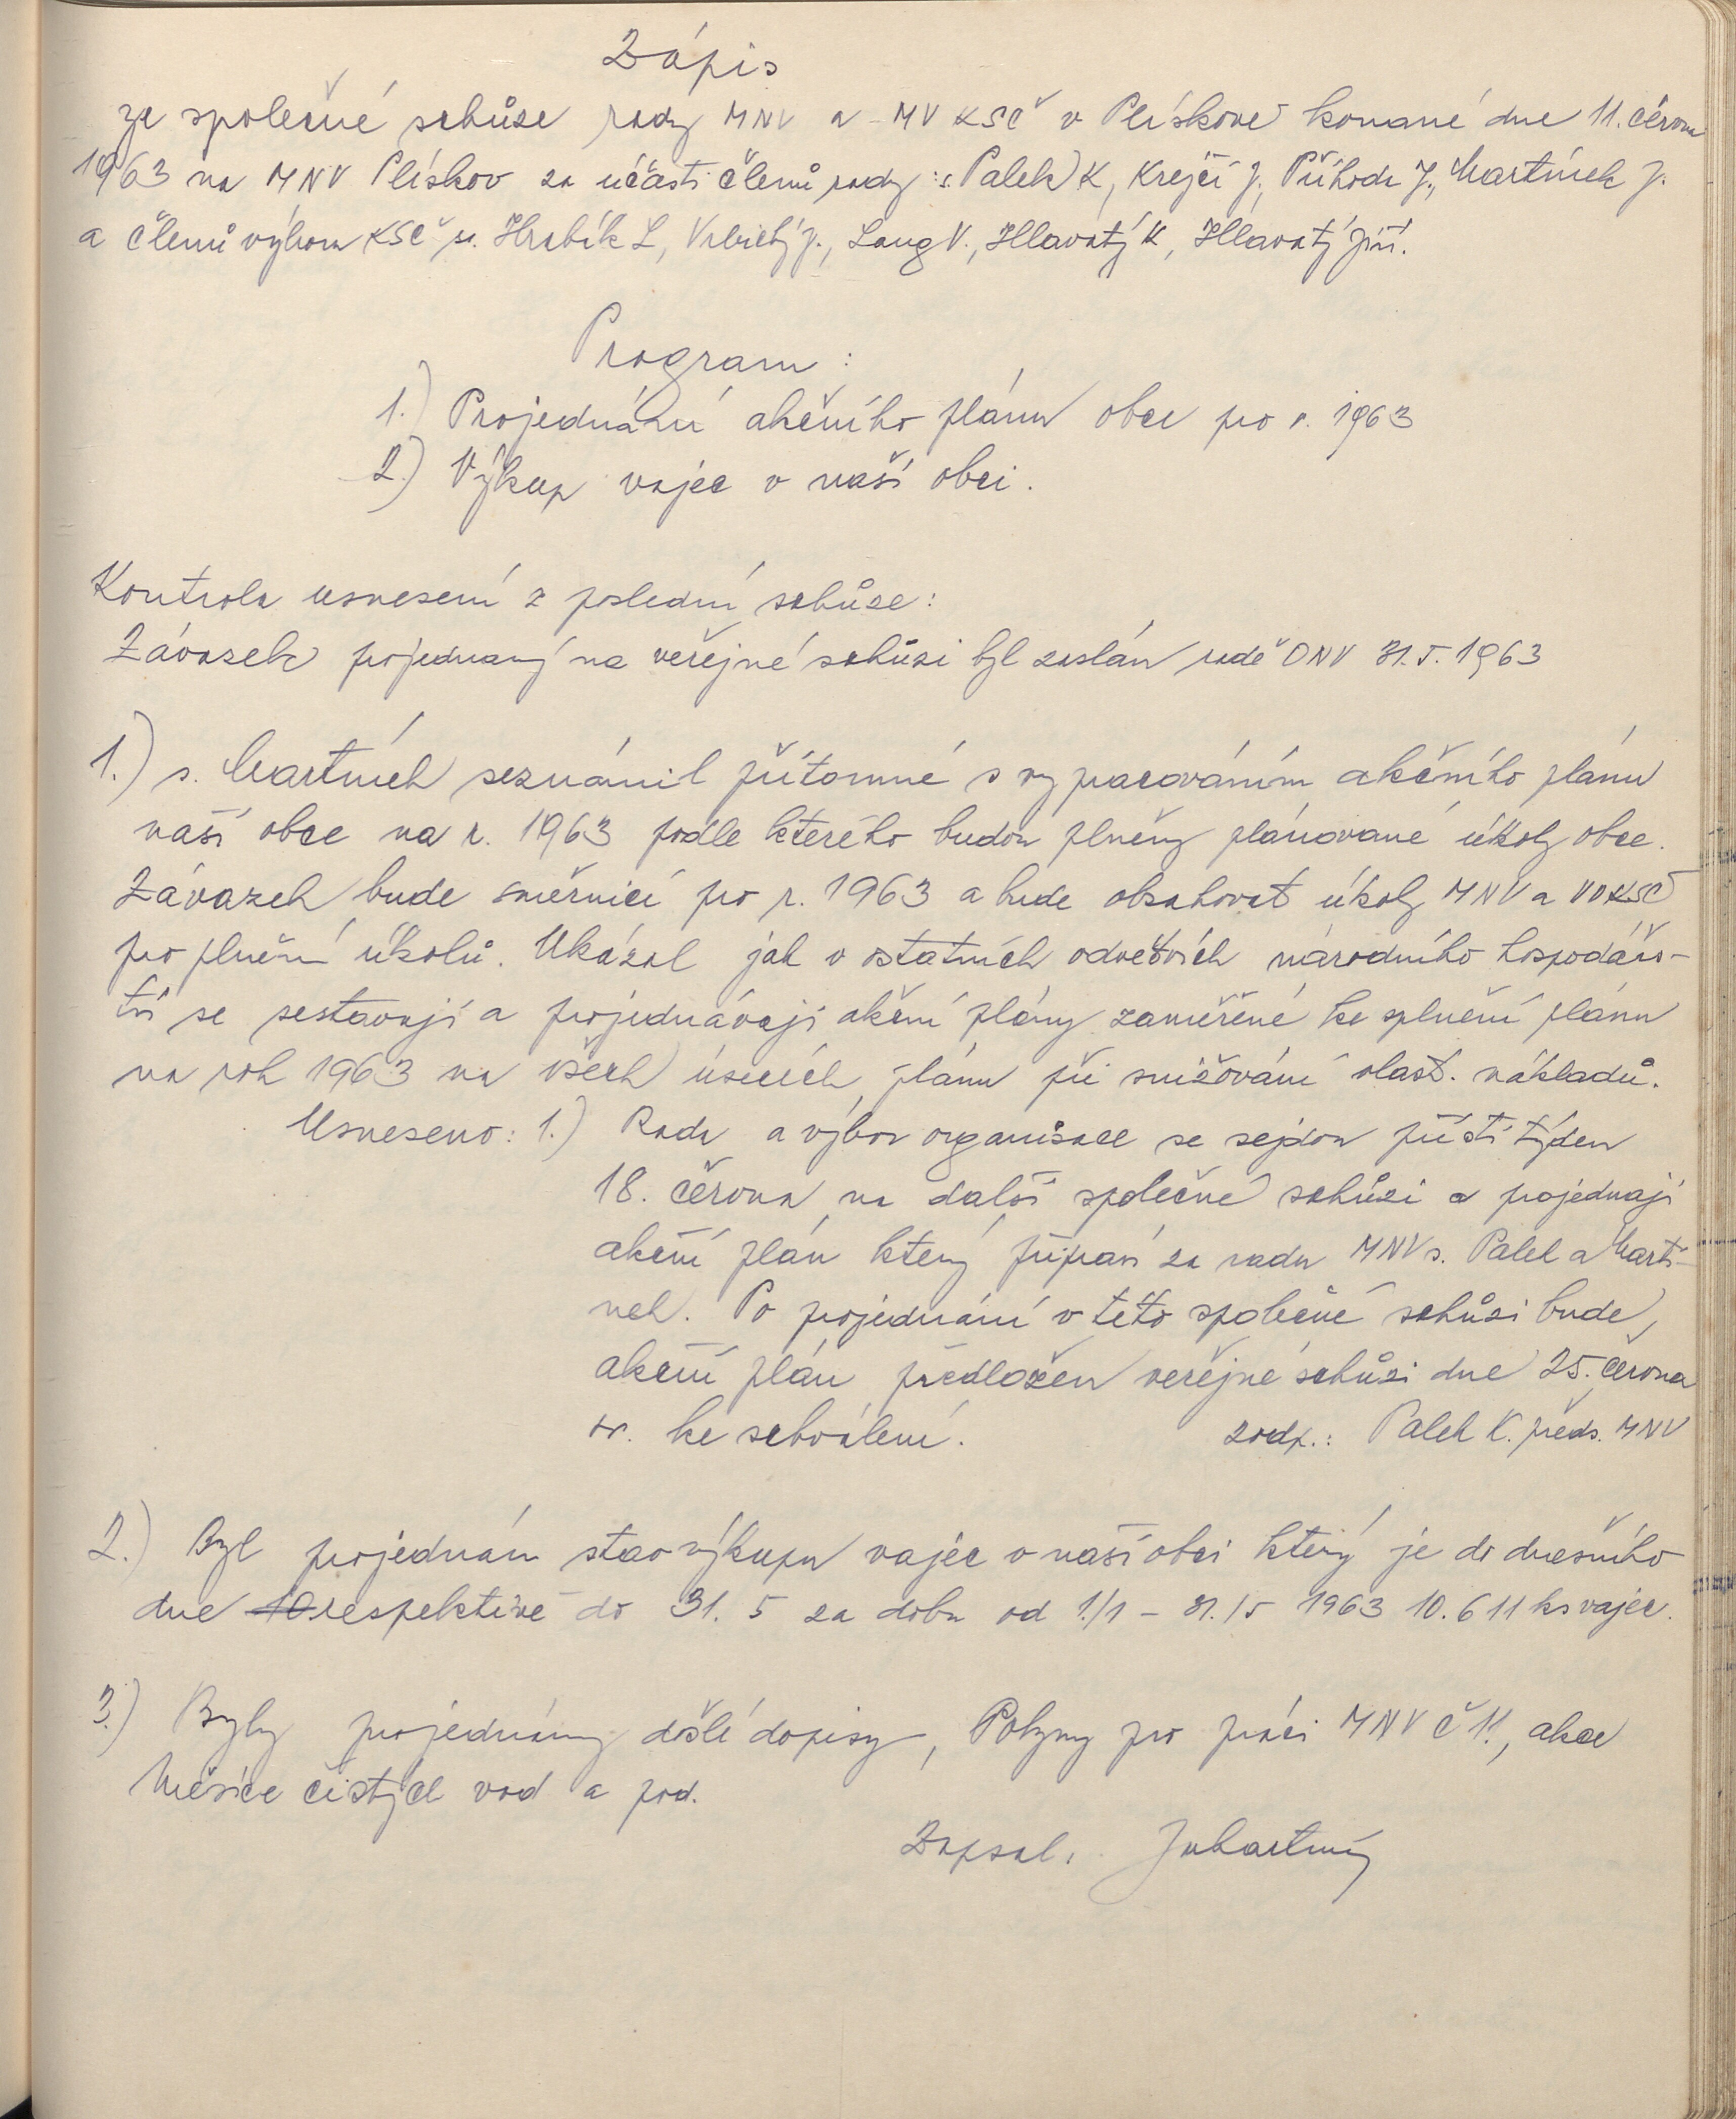 Zápis
ze společné schůze rady MNV a MV KSČ v Plískově konané dne 11. června
1963 na MNV Plískov za účasti členů rady: s. Palek K, Krejčí J, Příhoda J, Martínek J.
a členů výboru KSČ s. Hrabík L, Vrbický J., Lang V., Hlavatý K, Hlavatý Jiří.
Program:
1.) Projednání akčního plánu obce pro r. 1963
2.) Výkup vajec v naší obci.
Kontrola usnesení z poslední schůze:
Závazek projednaný na veřejné schůzi byl zaslán radě ONV 31.5.1963
1.) s. Martínek seznámil přítomné s vypracováním akčního plánu
naší obce na r. 1963 podle kterého budou plněny plánované úkoly obce.
Závazek bude směrnicí pro r. 1963 a bude obsahovat úkoly MNV a VOKSČ
pro plnění úkolů. Ukázal jak v ostatních odvětvích národního hospodářs-
tví se sestavují a projednávají akční plány zaměřené ke splnění plánu
na rok 1963 na všech úsecích plánu při snižování vlast. nákladů.
Usneseno: 1.) Rada a výbor organisace se sejdou příští týden
18. června na další společné schůzi a projednají
akční plán který připraví za radu MNV s. Palek a Martí-
nek. Po projednání v této společné schůzi bude
akční plán předložen veřejné schůzi dne 25. června
t.r. ke schválení. zodp.: Palek K. předs. MNV
2.) Byl projednán stav výkupu vajec v naší obci který je do dnešního
dne 10 respektive do 31. 5 za dobu od 1./1 - 31./5 1963 10.611 ks vajec.
3.) Byly projednány došlé dopisy, Pokyny pro práci MNV č 11., akce
Měsíce čistých vod a pod.
Zapsal: JMartínek